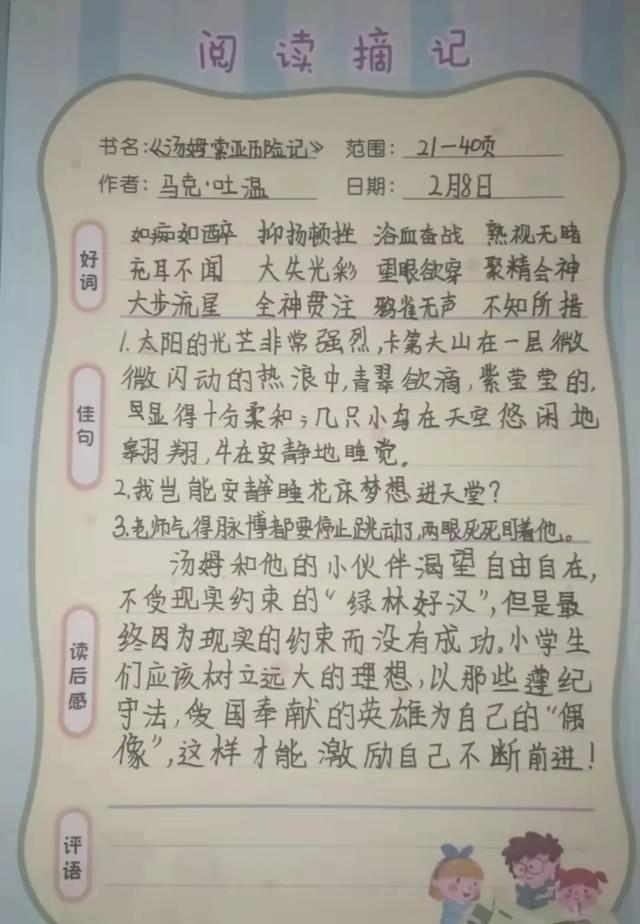 阅读摘记
书名:《汤姆·索亚历险记》 范围: 21—40页
作者: 马克·吐温 日期: 2月8日
好词
如痴如醉 抑扬顿挫 浴血奋战 熟视无睹
充耳不闻 大失光彩 望眼欲穿 聚精会神
大步流星 全神贯注 鸦雀无声 不知所措
佳句
1.太阳的光芒非常强烈,卡第夫山在一层微
微闪动的热浪中,青翠欲滴,紫莹莹的,
显得十分柔和;几只小鸟在天空悠闲地
翱翔,牛在安静地睡觉。
2.我岂能安静睡花床梦想进天堂?
3.老师气得脉搏都要停止跳动了,两眼死死盯着他。
读后感
汤姆和他的小伙伴渴望自由自在,
不受现实约束的“绿林好汉”,但是最
终因为现实的约束而没有成功。小学生
们应该树立远大的理想,以那些遵纪
守法,爱国奉献的英雄为自己的“偶
像”,这样才能激励自己不断前进!
评语